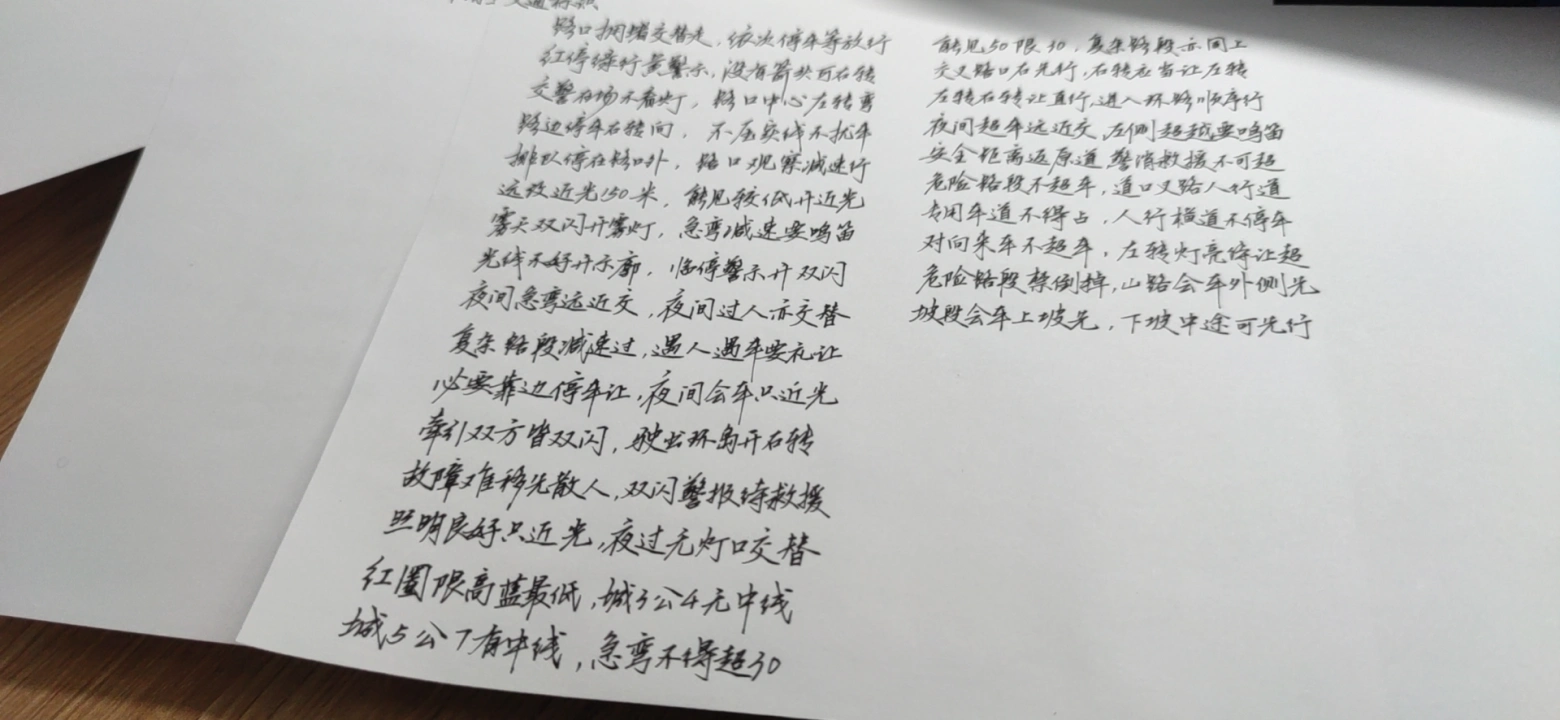 交通标款
路口拥堵交替走，依次停车等放行
红停绿行黄警示，没有箭头可右转
交警在场不看灯，路口中心左转弯
路边停车右转向，不压实线不扰车
排队停在路口外，路口观察减速行
远改近光150米，能见较低开近光
雾天双闪开雾灯，急弯减速要鸣笛
光线不好开示廓，临停警示开双闪
夜间急弯远近交，夜间过人亦交替
复杂路段减速过，遇人遇车要礼让
必要靠边停车让，夜间会车只近光
牵引双方皆双闪，驶出环岛开右转
故障难移先散人，双闪警报待救援
照明良好只近光，夜过无灯口交替
红圈限高蓝最低，城3公4无中线
城5公7有中线，急弯不得超30
能见50限30，复杂路段亦同上
交叉路口右先行，右转应当让左转
左转右转让直行，进入环路顺序行
夜间超车远近交，左侧超越要鸣笛
安全距离返原道，警消救援不可超
危险路段不超车，道口叉路人行道
专用车道不得占，人行横道不停车
对向来车不超车，左转灯亮停让超
危险路段禁倒掉，山路会车外侧先
坡段会车上坡先，下坡中途可先行